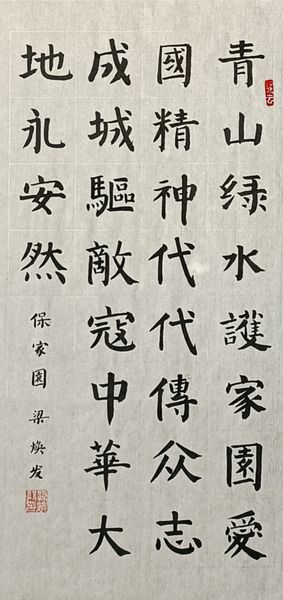 青山绿水護家園愛
國精神代代傳众志
成城驅敵寇中華大
地永安然
保家園 梁焕发